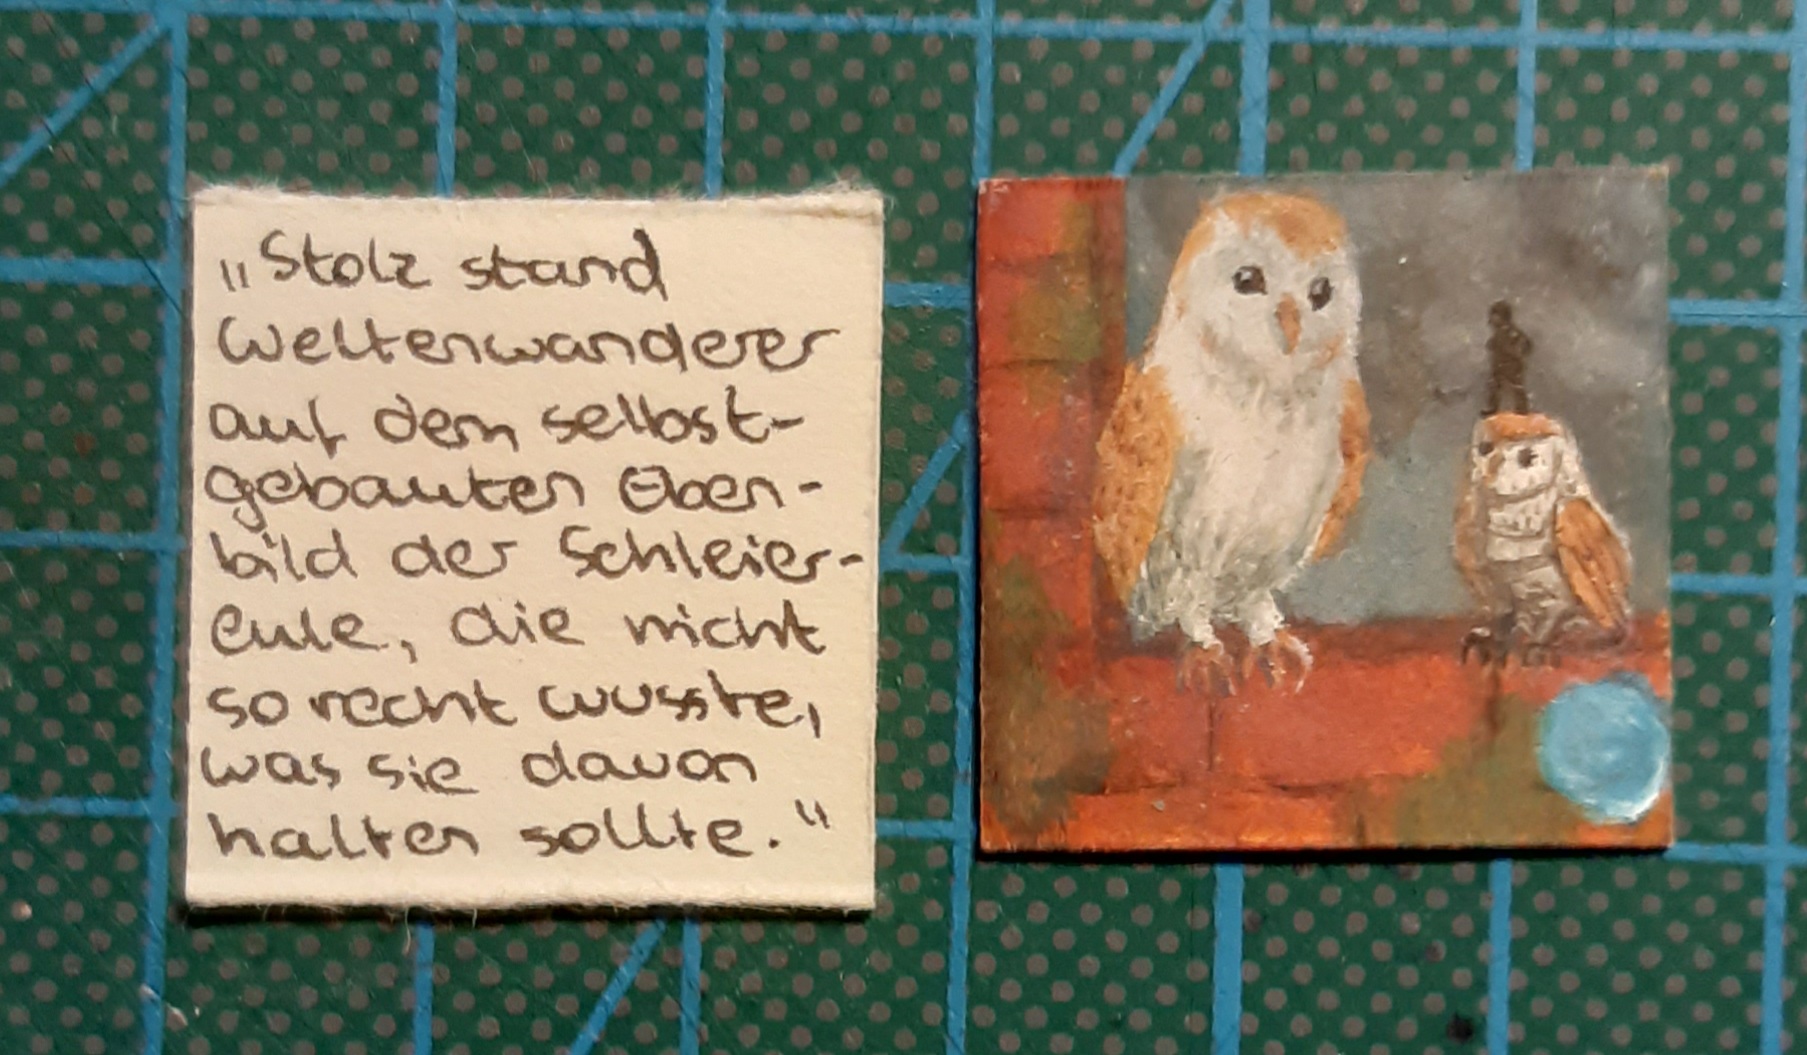 „Stolz stand
Weltenwanderer
auf dem selbst-
gebauten Eben-
bild der Schleier-
eule, die nicht
so recht wusste,
was sie davon
halten sollte."